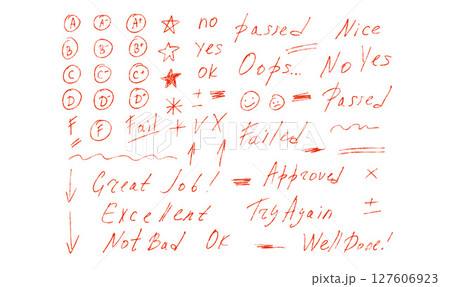 A A- A+ no passed Nice
B B- B+ yes Oops... No Yes
C C- C+ ok
D D- D+ * ± = Passed
F F Fail + V X Failed
Great Job! Approved ×
Excellent Try Again ±
Not Bad OK Well Done!
pixta.jp - 127606923